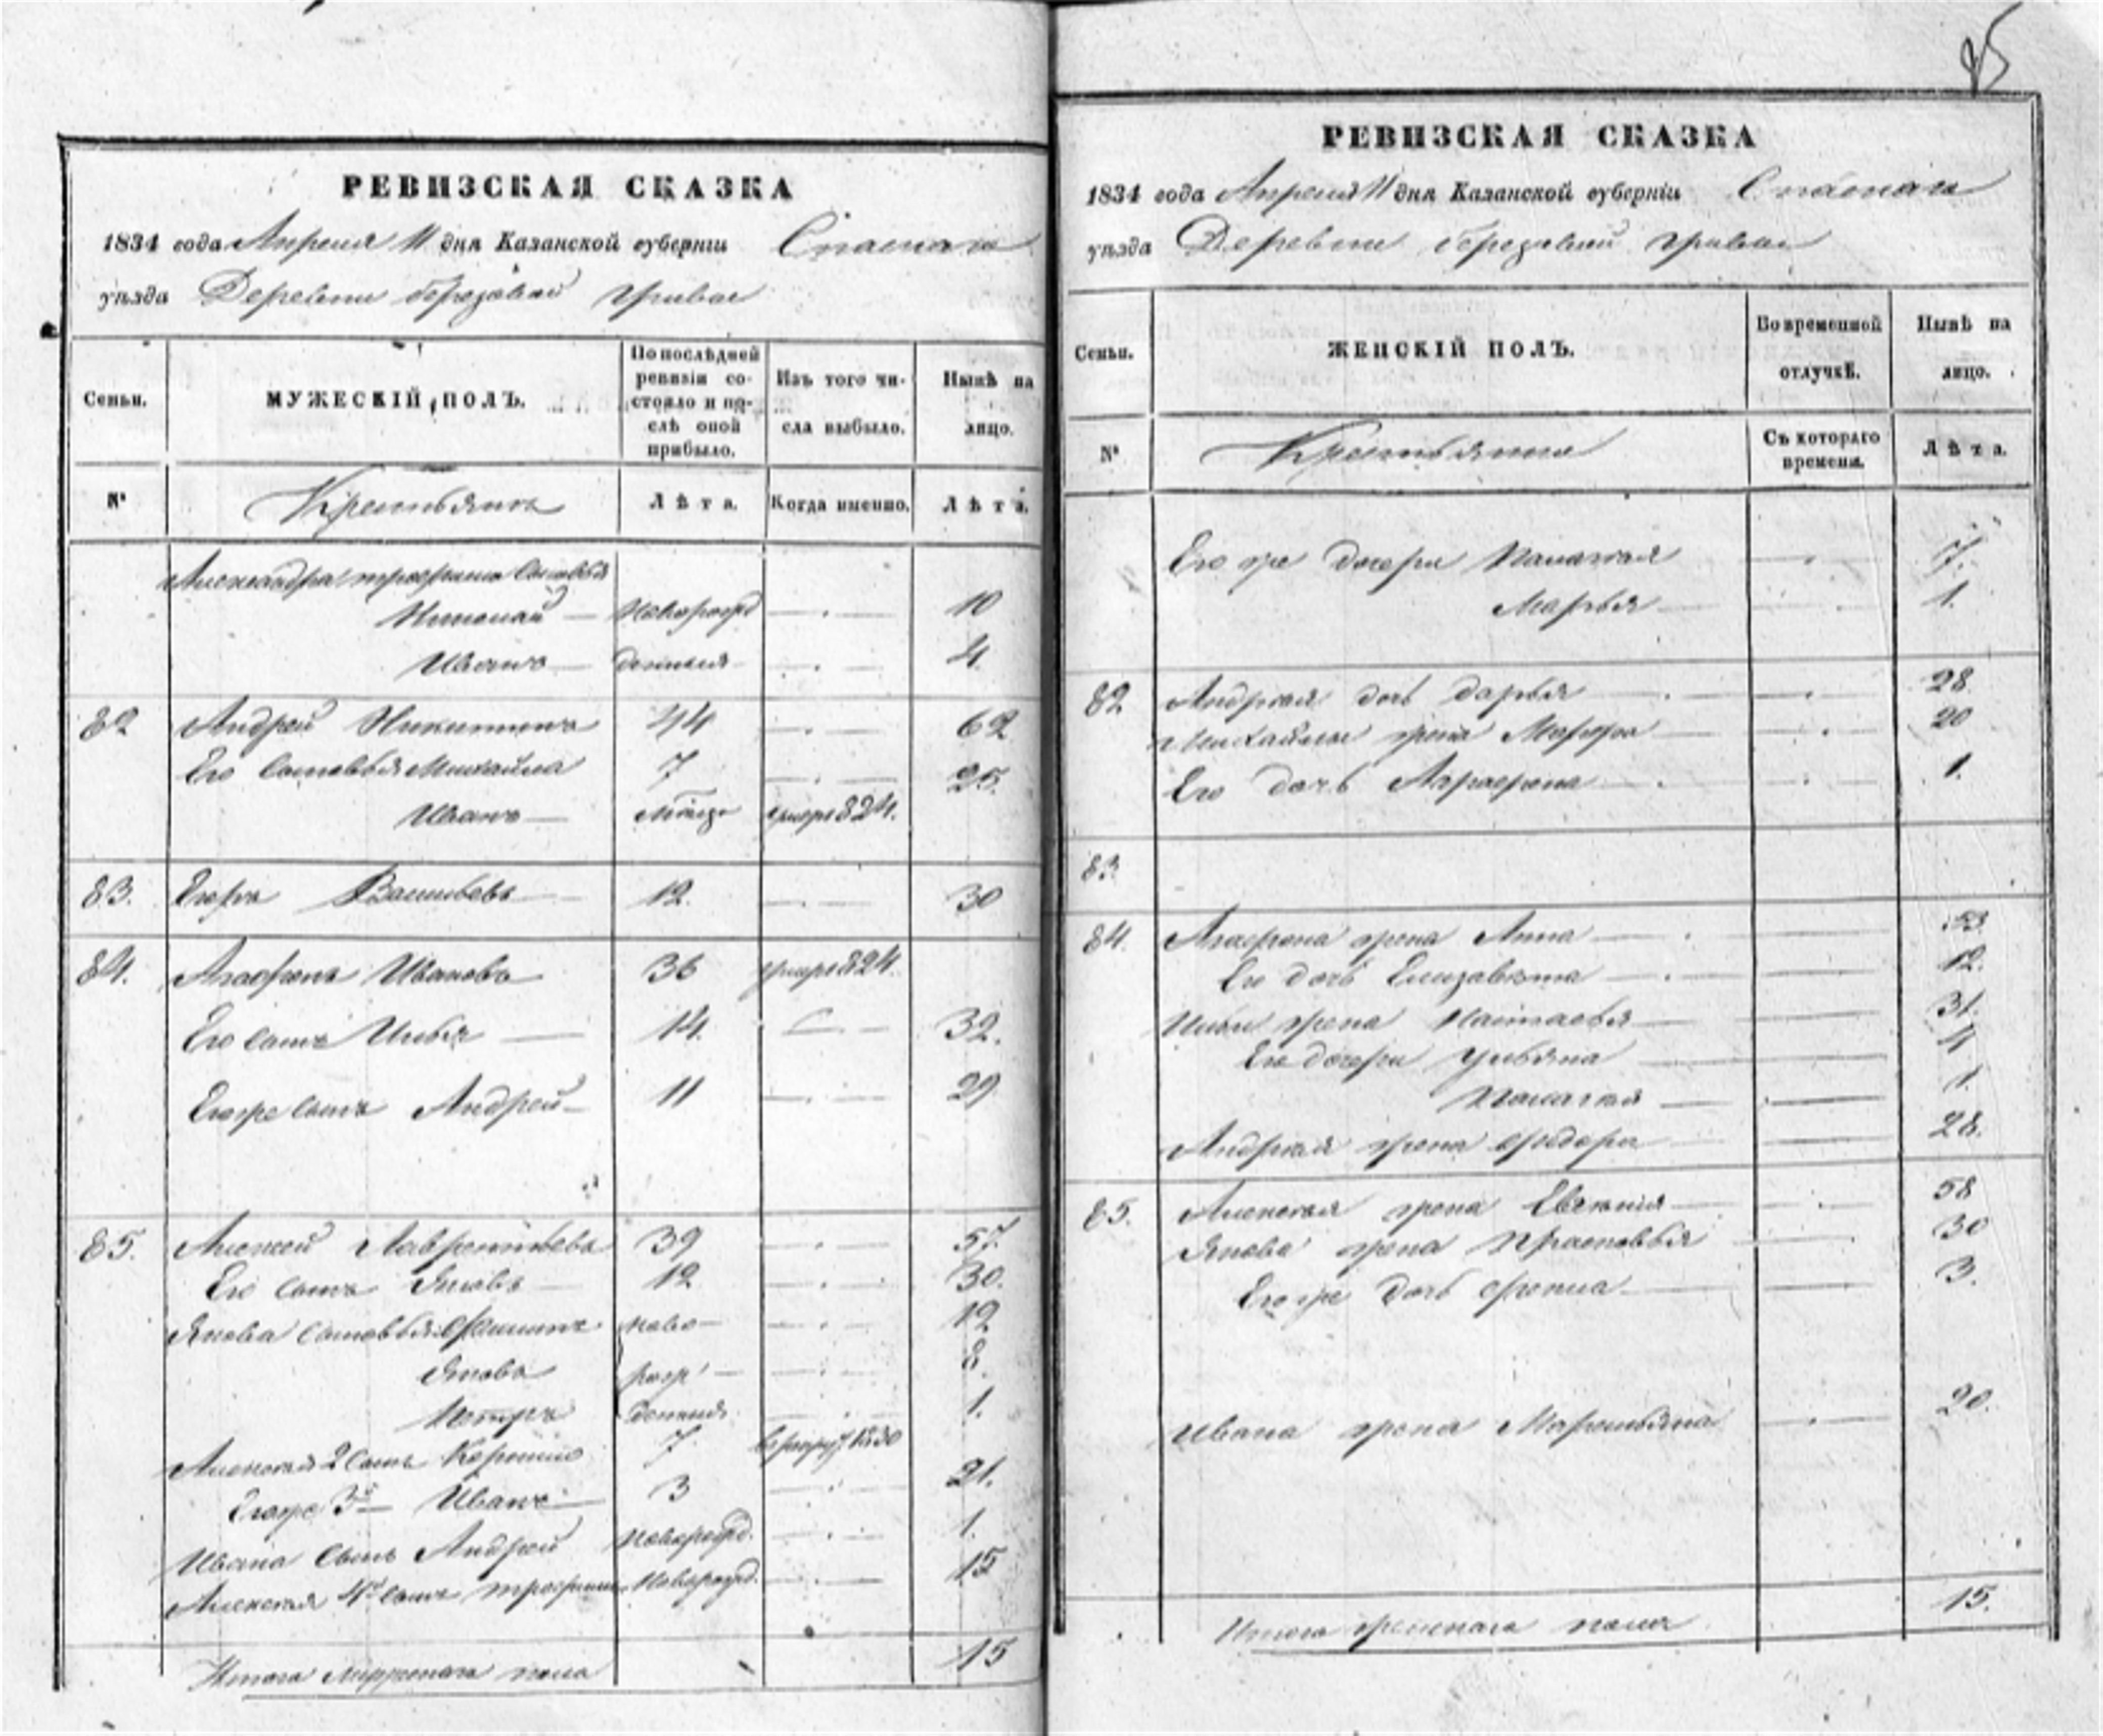 РЕВИЗСКАЯ СКАЗКА
1834 года Апреля 11 дня Казанской губерніи Спаскаго
уѣзда Деревни березовой гривы
Семьи.
МУЖЕСКІЙ ПОЛЪ.
По послѣдней ревизіи состояло и послѣ оной прибыло.
Изъ того числа выбыло.
Нынѣ на лицо.
№
Крестьянъ
Лѣта.
Когда именно.
Лѣта.
Александра трофимова сыновья
Николай новорож 10
Иванъ денныя 4.
82 Андрей Никитинъ 44 62
Его сыновья Михайла 7 25.
Иванъ умеръ 824.
83. Егоръ Васильевъ 12. 30
84. Агафонъ Ивановъ 36 умеръ 824.
Его сынъ Илья 14. 32.
Его же сынъ Андрей 11 29
85. Алексей Лаврентьевъ 39 57.
Его сынъ Яковъ 12 30.
Якова сыновья Филипъ ново 12
Яковъ рож 8.
Петръ денныя 1.
Алексея 2 сынъ 7 1830
Его же 3й Иванъ 3 21.
Ивана сынъ Андрей новорожд. 1.
Алексея 4й сынъ трофимъ новорожд. 15
Итого мужескаго пола 15
85
РЕВИЗСКАЯ СКАЗКА
1834 года Апреля 11 дня Казанской губерніи Спаскаго
уѣзда Деревни березовой гривы
Семьи.
ЖЕНСКІЙ ПОЛЪ.
Во временной отлучкѣ.
Нынѣ на лицо.
№
Съ котораго времени.
Лѣта.
Его же дочери Палагея 7.
Марья 1.
82 Андрея дочь дарья 28.
Михайлы жена Марфа 20
Его дочь Аграфена 1.
83
84. Агафона жена Анна 53
Его дочь Елизавета 12.
Ильи жена Настасья 31.
Его дочери Ульяна 11
Палагея 1.
Андрея жена федора 28.
85. Алексея жена Евгения 58
Якова жена Прасковья 30
Его же дочь 3.
Ивана жена Маремьяна 20.
Итого женскаго пола 15.